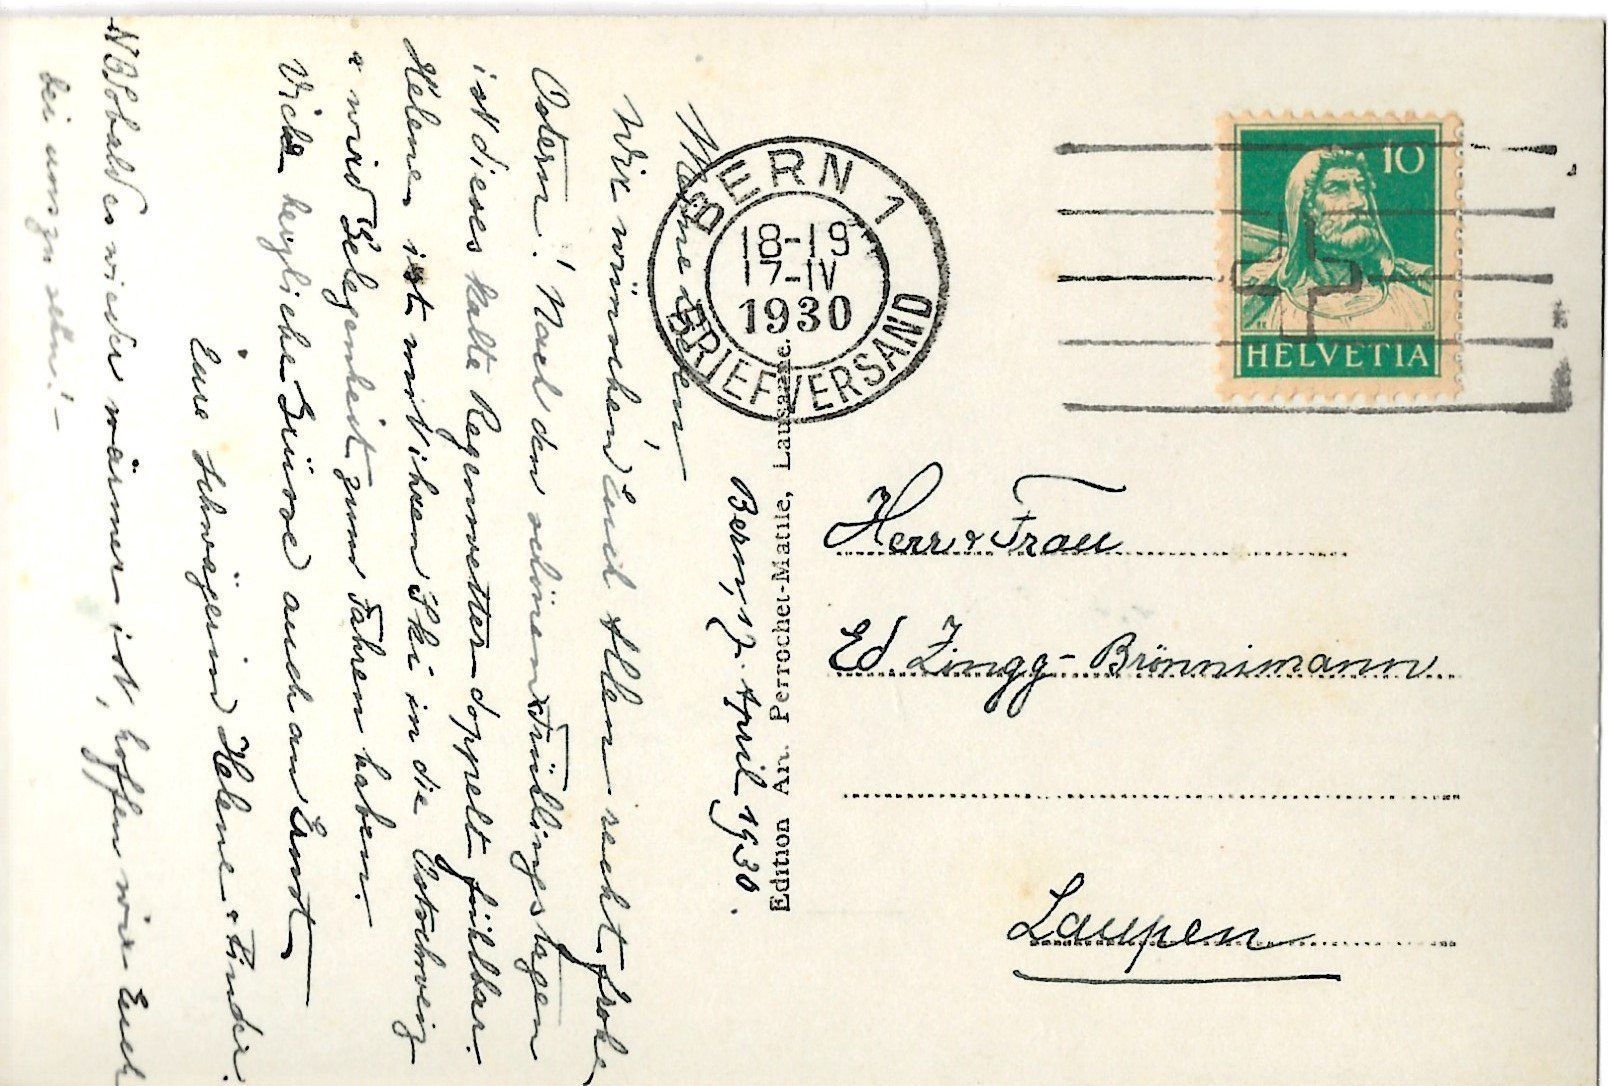 Bern, 17. April 1930.
Meine Lieben
Wir wünschen Euch Allen recht frohe
Ostern! Nach den schönen Frühlingstagen
ist dieses kalte Regenwetter doppelt fühlbar.
Helene ist mit ihren Ski in die Ostschweiz
& wird Gelegenheit zum Fahren haben.
Viele herzliche Grüsse auch an Ernst
Eure Schwägerin Helene &
NB Sobald es wieder wärmer ist, hoffen wir Euch
bei uns zu sehn! –
Edition Art. Perrochet-Matile, Lausanne.
BERN 1
18-19
17-IV
1930
BRIEFVERSAND
10
HELVETIA
Herr & Frau
Ed. Zingg-Brönnimann
Laupen